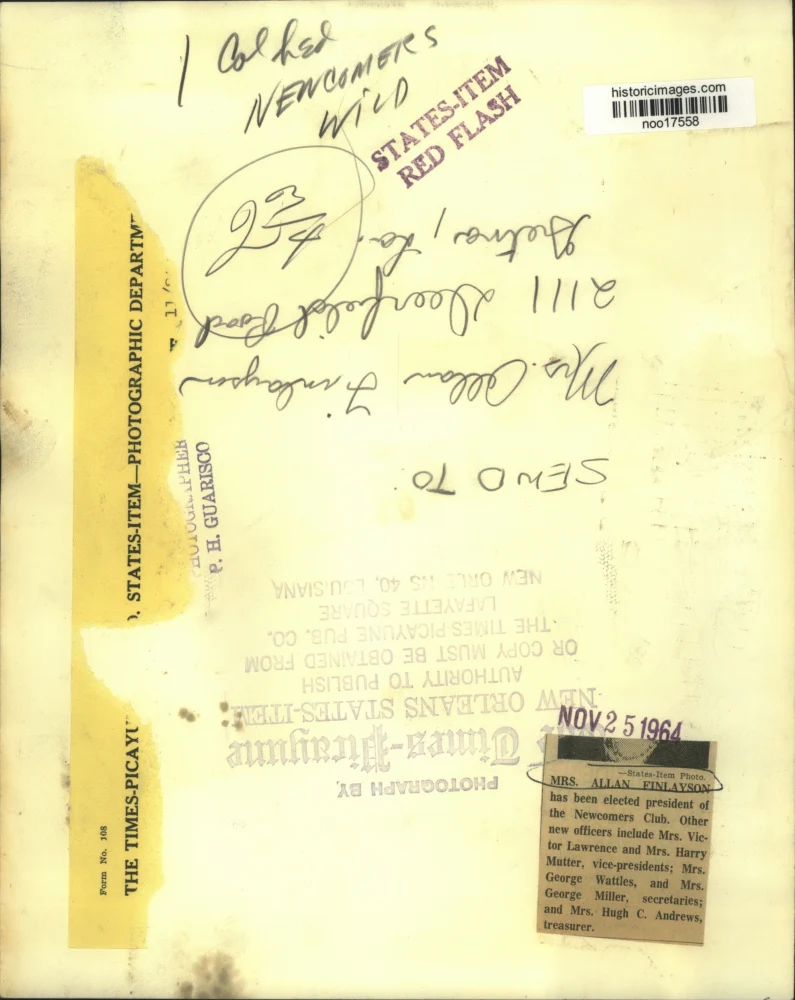 1 Col
NEWCOMERS
WILD
STATES-ITEM
RED FLASH
historicimages.com
noo17558
SEND TO:
Mrs. Allan Finlayson
2111 Deerfield Road
Gretna, La.
THE TIMES-PICAYU
STATES-ITEM—PHOTOGRAPHIC DEPARTM
Form No. 108
P. H. GUARISCO
PHOTOGRAPH BY,
Times-Picayune
NEW ORLEANS STATES-ITEM
AUTHORITY TO PUBLISH
OR COPY MUST BE OBTAINED FROM
THE TIMES-PICAYUNE PUB. CO.
LAFAYETTE SQUARE
NEW ORLE NS 40, LOUISIANA
NOV 25 1964
—States-Item Photo.
MRS. ALLAN FINLAYSON
has been elected president of
the Newcomers Club. Other
new officers include Mrs. Vic-
tor Lawrence and Mrs. Harry
Mutter, vice-presidents; Mrs.
George Wattles, and Mrs.
George Miller, secretaries;
and Mrs. Hugh C. Andrews,
treasurer.